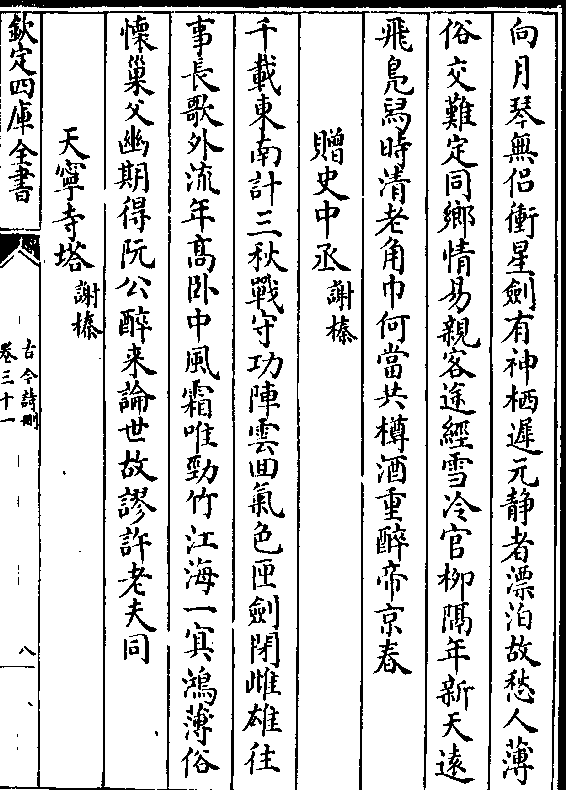 向月琴無侣衝星劍有神栖遲元静者漂泊故愁人薄
俗交難定同鄉情易親客途經雪冷官柳隔年新天遠
飛鳬舄時清老角巾何當共樽酒重醉帝京春
贈史中丞 謝榛
千載東南計三秋戰守功陣雲回氣色匣劍閉雌雄往
事長歌外流年髙卧中風霜唯勁竹江海一寅鴻薄俗
懐巢父幽期得阮公醉来論世故謬許老夫同
天寧寺塔 謝榛
欽定四庫全書
古今詩刪
卷三十一
八